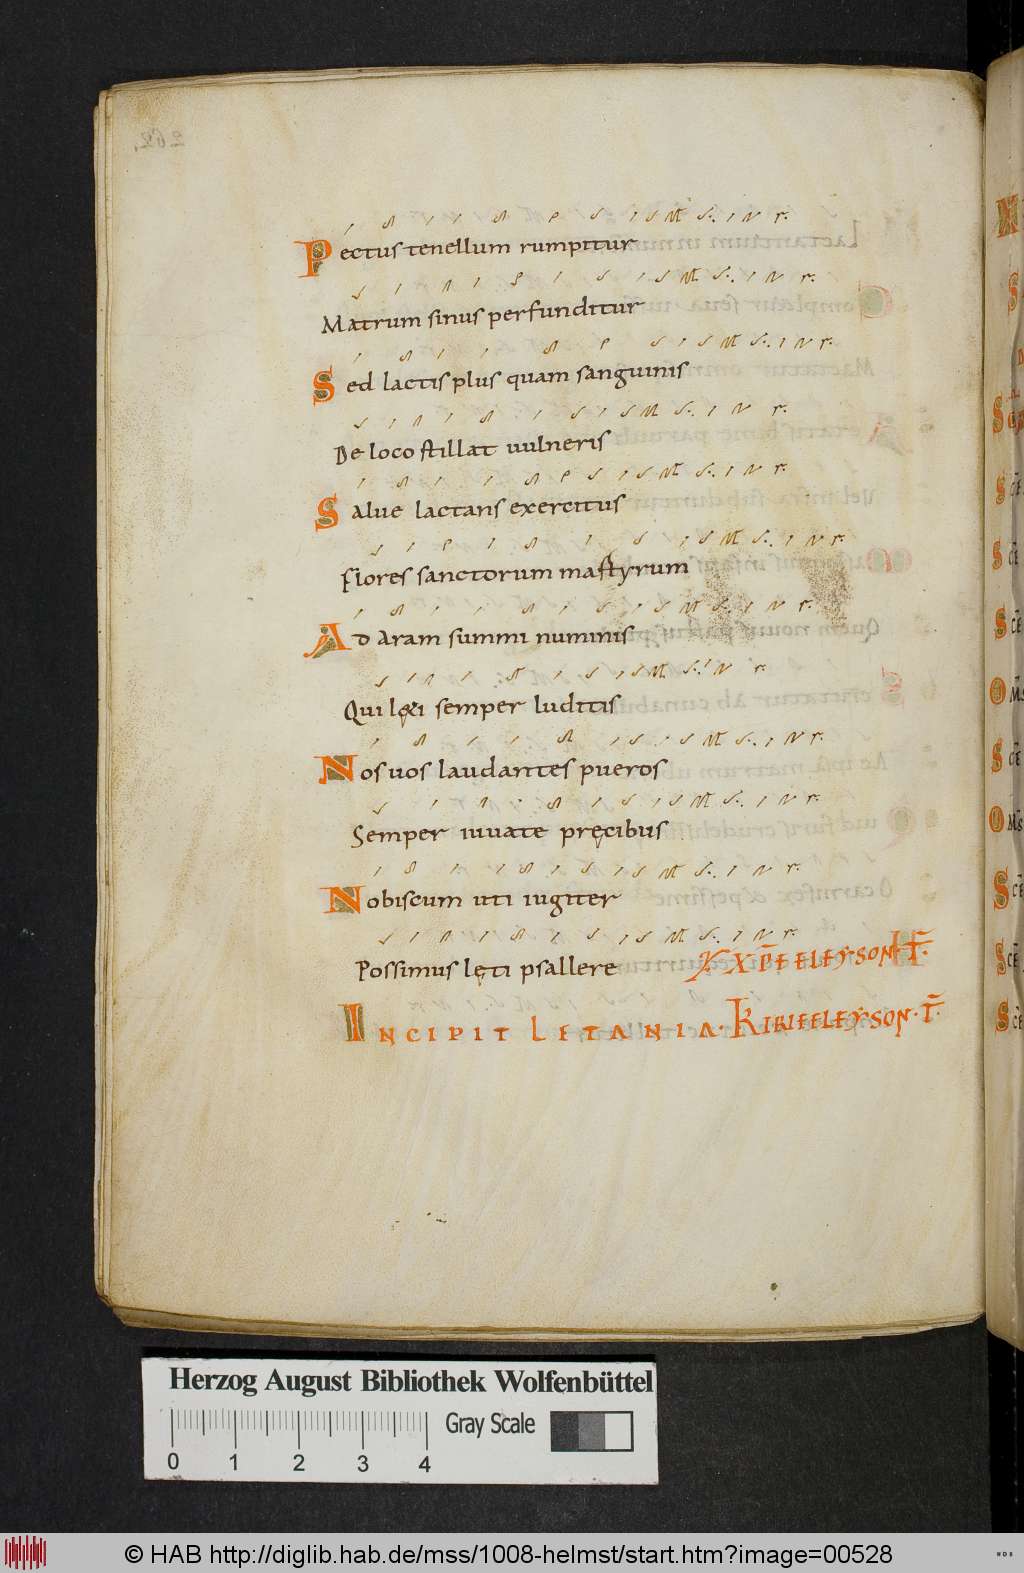 Pectus tenellum rumpitur
Matrum sinus perfunditur
Sed lactis plus quam sanguinis
De loco stillat uulneris
Salue lactans exercitus
Flores sanctorum martyrum
Ad aram summi numinis
Qui lęti semper luditis
Nos uos laudantes pueros
Semper iuuate pręcibus
Nobiscum uti iugiter
Possimus lęti psallere X͞P͞E ELEYSON · T̄ ·
INCIPIT LETANIA · KIRIEELEYSON · T̄ ·
Herzog August Bibliothek Wolfenbüttel
Gray Scale
0 1 2 3 4
© HAB http://diglib.hab.de/mss/1008-helmst/start.htm?image=00528